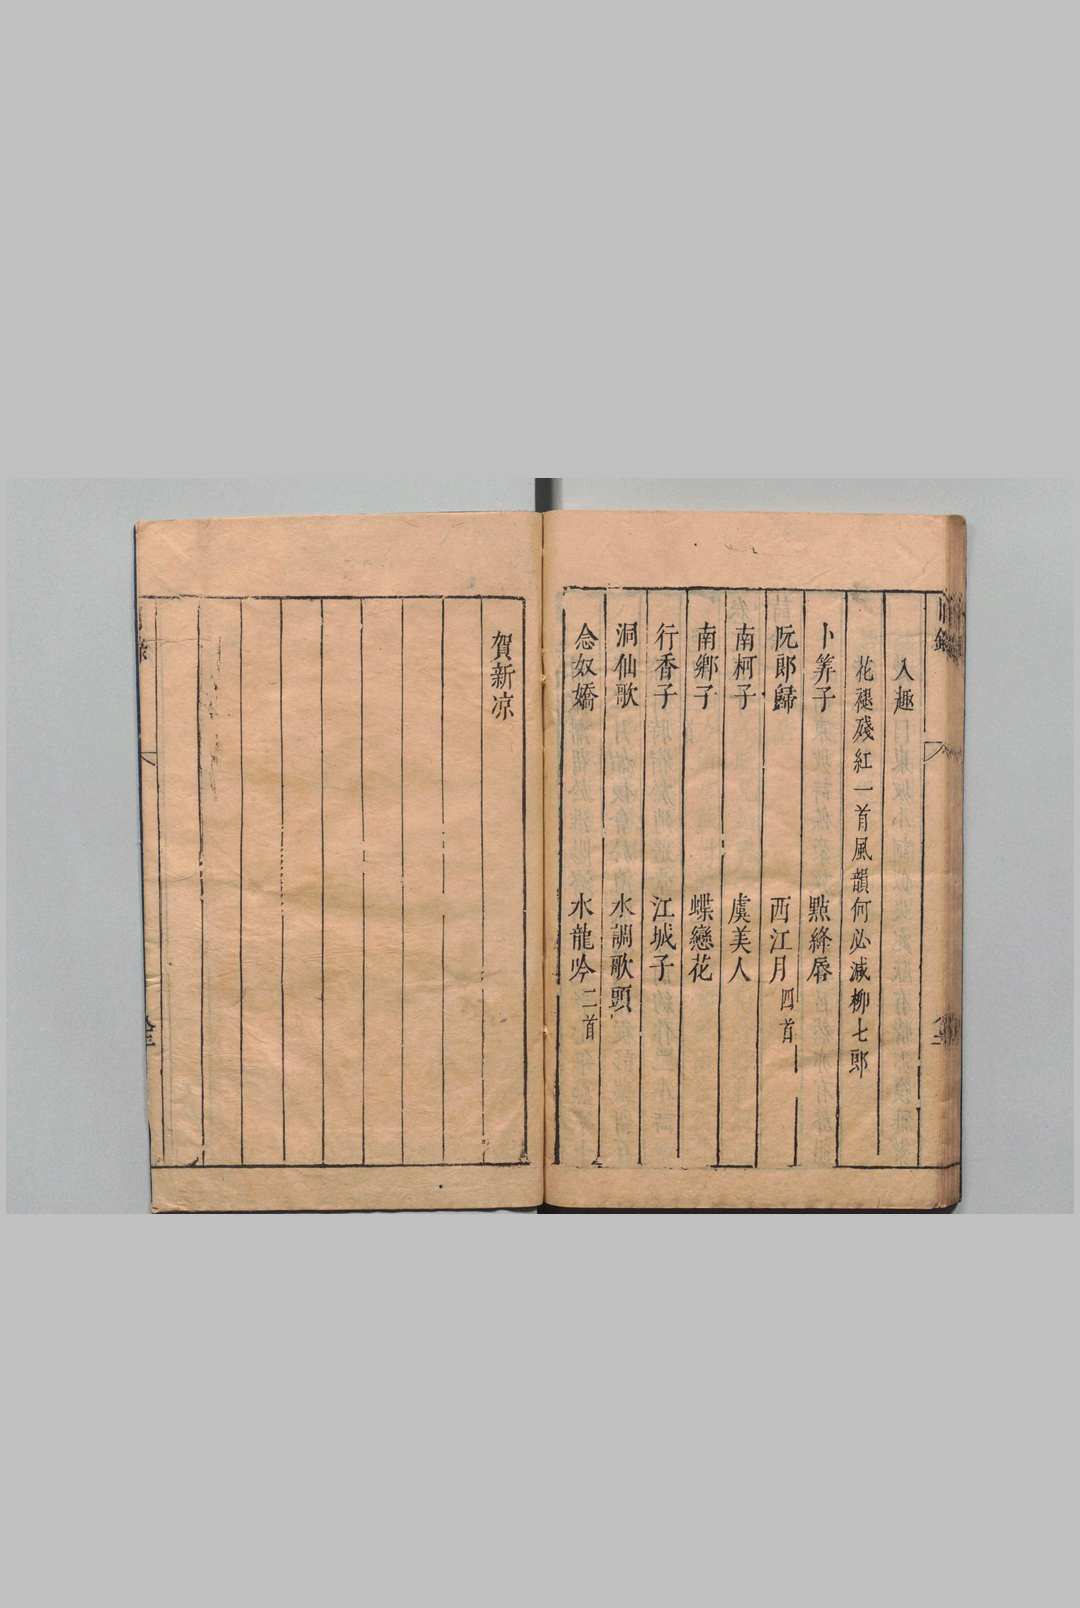 入趣
花褪殘紅一首風韻何必減柳七郎
卜筭子 點絳唇
阮郎歸 西江月四首
南柯子 虞美人
南鄉子 蝶戀花
行香子 江城子
洞仙歌 水調歌頭
念奴嬌 水龍吟二首
賀新凉